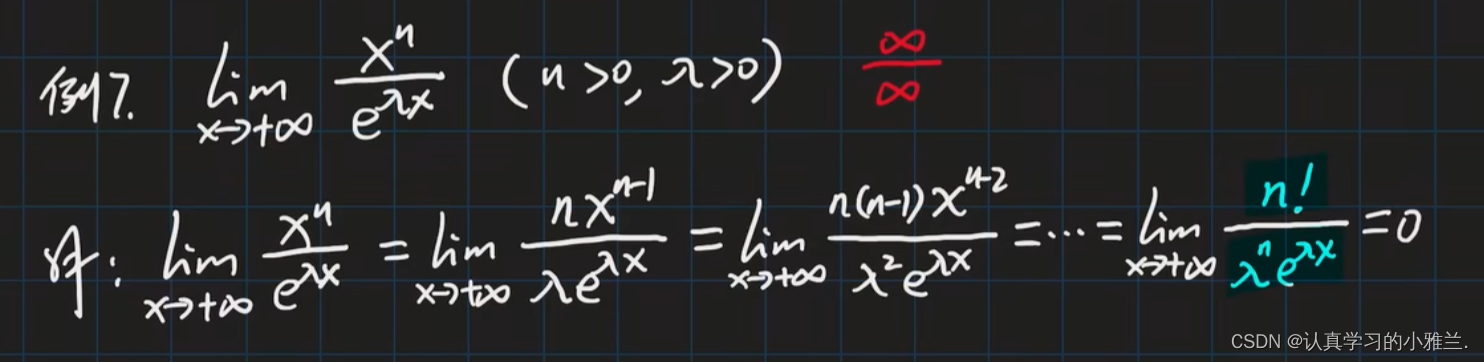 例7. lim x→+∞ xⁿ/e^(λx) (n>0, λ>0) ∞/∞
解: lim x→+∞ xⁿ/e^(λx) = lim x→+∞ nxⁿ⁻¹/λe^(λx) = lim x→+∞ n(n-1)xⁿ⁻²/λ²e^(λx) = ⋯ = lim x→+∞ n!/λⁿe^(λx) = 0
CSDN @认真学习的小雅兰.